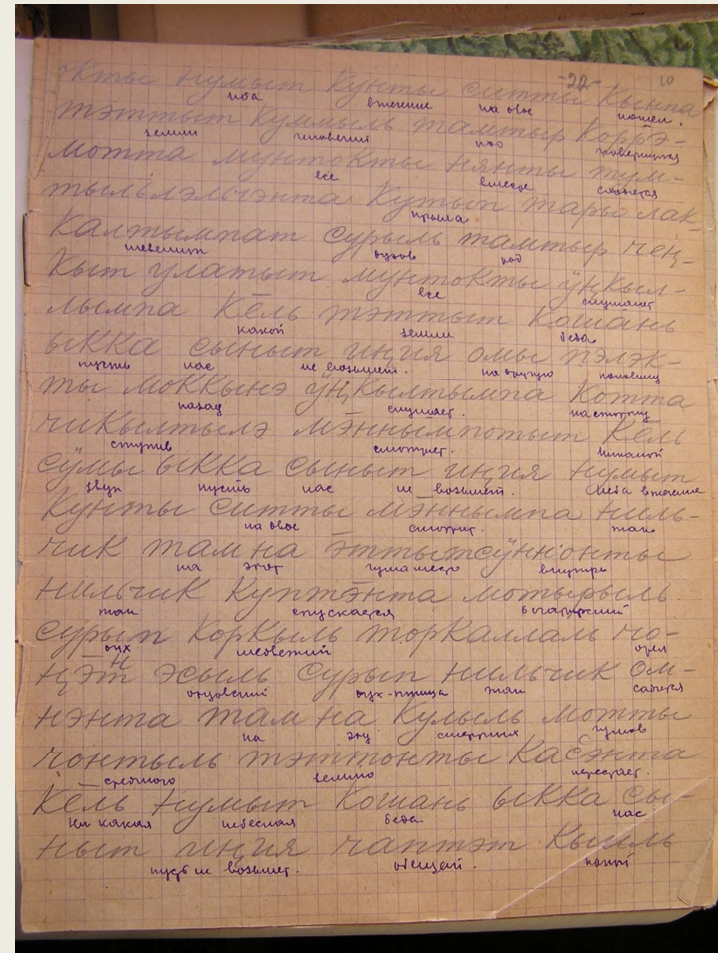 -22- 10
нумыт Кунты ситты Кынпа
неба втечение на обое пошел.
тэттыт Куммыль тамтыр Коррэ-
земли человечий род повернулся
мотта мунтоКты нянты тум-
все вместе
тыльлэльчэнта Кутып тары лак-
крыла
Калтымпат сурыль тамтыр чең-
шевелит духов род
Кыт улатыт мунтоКты ӱңКыл-
все слушает
лымпа Кёль тэттыт Кошань
какой земли беда
ыКKа сыныт иңия омы пэлэк-
пусть нас не возьмет. на другую половину
ты моККынэ ӱңКылтымпа Котта
назад слушает. на спину
чиКылтылэ мэннымпотыт Кёль
ступив смотрет. никакой
сӱмы ыККа сыныт иңия нумыт
звук пусть нас не возьмет. неба втечение
Кунты ситты мэннымпа ниль-
на обое смотрит. так
чиК там на этты сӱннонты
на этот внутрь
нильчиК Куптэнта мотырыль
так спускается богатырский
сурып КорКыль торКаллам чо-
дух медвежий орел
ңэт эсыль сурып нильчиК ом-
н отцовский дух-птица так садится
нэнта там на Кулыль мотты
на эту смертных чумов
чонтыль тэттонты Касэнта
среднего землю
Кёль нумыт Кошань ыККа сы-
Ни какая небесная беда. нас
ныт иңия чаптэт Кыиль
пусть не возьмет.